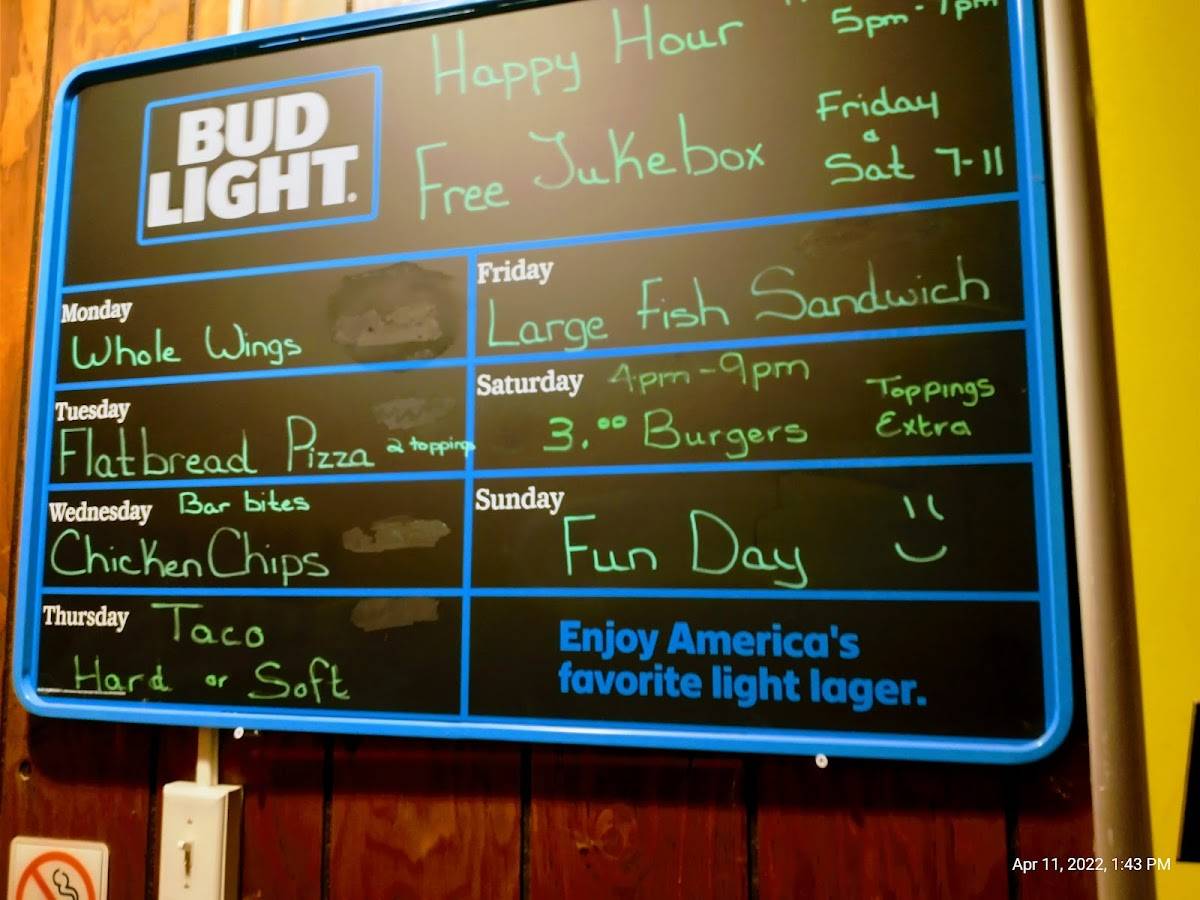 BUD
LIGHT.
Happy Hour
5pm - 7pm
Free Jukebox
Friday
&
Sat 7-11
Monday
Whole Wings
Tuesday
Flatbread Pizza 2 toppings
Wednesday Bar bites
Chicken Chips
Thursday Taco
Hard or Soft
Friday
Large Fish Sandwich
Saturday 4pm-9pm
3.00 Burgers
Toppings
Extra
Sunday
Fun Day
Enjoy America's
favorite light lager.
Apr 11, 2022, 1:43 PM